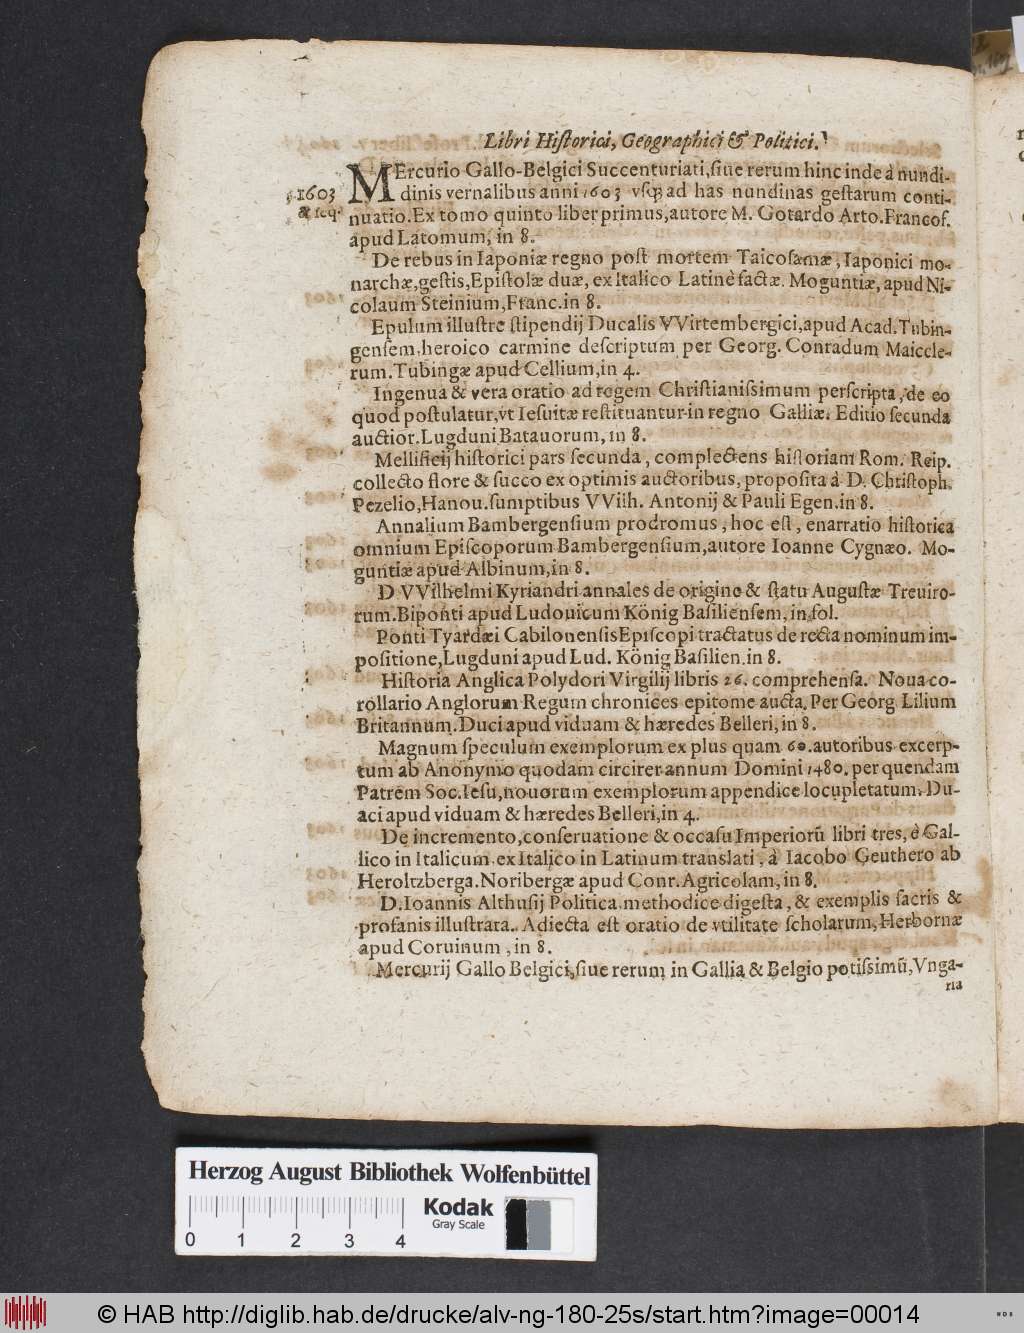 Libri Hiſtorici, Geographici & Politici.
MErcurio Gallo-Belgici Succenturiati,ſiue rerum hinc inde à nundi-
1603
dinis vernalibus anni 1603 vſq; ad has nundinas geſtarum conti-
& ſeq.
nuatio.Ex tomo quinto liber primus,autore M. Gotardo Arto.Francof.
apud Latomum, in 8.
De rebus in Iaponiæ regno poſt mortem Taicoſamæ, Iaponici mo-
narchæ,geſtis,Epiſtolæ duæ, ex Italico Latinè factæ. Moguntiæ, apud Ni-
colaum Steinium,Franc.in 8.
Epulum illuſtre ſtipendij Ducalis VVirtembergici,apud Acad.Tubin-
genſem,heroico carmine deſcriptum per Georg. Conradum Maiccle-
rum.Tubingæ apud Cellium,in 4.
Ingenua & vera oratio ad regem Chriſtianiſsimum perſcripta, de eo
quod poſtulatur,vt Ieſuitæ reſtituantur in regno Galliæ. Editio ſecunda
auctior.Lugduni Batauorum, in 8.
Mellificij hiſtorici pars ſecunda, complectens hiſtoriam Rom. Reip.
collecto flore & ſucco ex optimis auctoribus, propoſita à D. Chriſtoph.
Pezelio,Hanou.ſumptibus VVilh. Antonij & Pauli Egen.in 8.
Annalium Bambergenſium prodromus, hoc eſt, enarratio hiſtorica
omnium Epiſcoporum Bambergenſium,autore Ioanne Cygnæo. Mo-
guntiæ apud Albinum,in 8.
D VVilhelmi Kyriandri annales de origine & ſtatu Auguſtæ Treuiro-
rum.Biponti apud Ludouicum König Baſilienſem, in fol.
Ponti Tyardæi CabilonenſisEpiſcopi tractatus de recta nominum im-
poſitione,Lugduni apud Lud. König Baſilien.in 8.
Hiſtoria Anglica Polydori Virgilij libris 26. comprehenſa. Noua co-
rollario Anglorum Regum chronices epitome aucta. Per Georg Lilium
Britannum.Duci apud viduam & hæredes Belleri, in 8.
Magnum ſpeculum exemplorum ex plus quam 60.autoribus excerp-
tum ab Anonymo quodam circirer annum Domini 1480. per quendam
Patrem Soc.Ieſu,nouorum exemplorum appendice locupletatum. Du-
aci apud viduam & hæredes Belleri,in 4.
De incremento,conſeruatione & occaſu Imperiorū libri tres, è Gal-
lico in Italicum, ex Italico in Latinum translati, à Iacobo Geuthero ab
Heroltzberga.Noribergæ apud Conr.Agricolam, in 8.
D.Ioannis Althuſij Politica methodice digeſta, & exemplis ſacris &
profanis illuſtrara. Adiecta eſt oratio de vtilitate ſcholarum, Herbornæ
apud Coruinum, in 8.
Mercurij Gallo Belgici,ſiue rerum in Gallia & Belgio potiſsimū, Vnga-
ria
Herzog August Bibliothek Wolfenbüttel
0 1 2 3 4
Kodak
Gray Scale
© HAB http://diglib.hab.de/drucke/alv-ng-180-25s/start.htm?image=00014